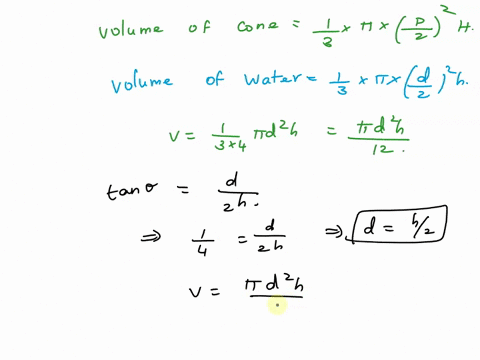 volume of cone = 1/3 × π × (D/2)² H.
volume of water = 1/3 × π × (d/2)² h.
v = 1/(3×4) πd²h = πd²h/12.
tanθ = d/2h.
⇒ 1/4 = d/2h ⇒ d = h/2
v = πd²h/